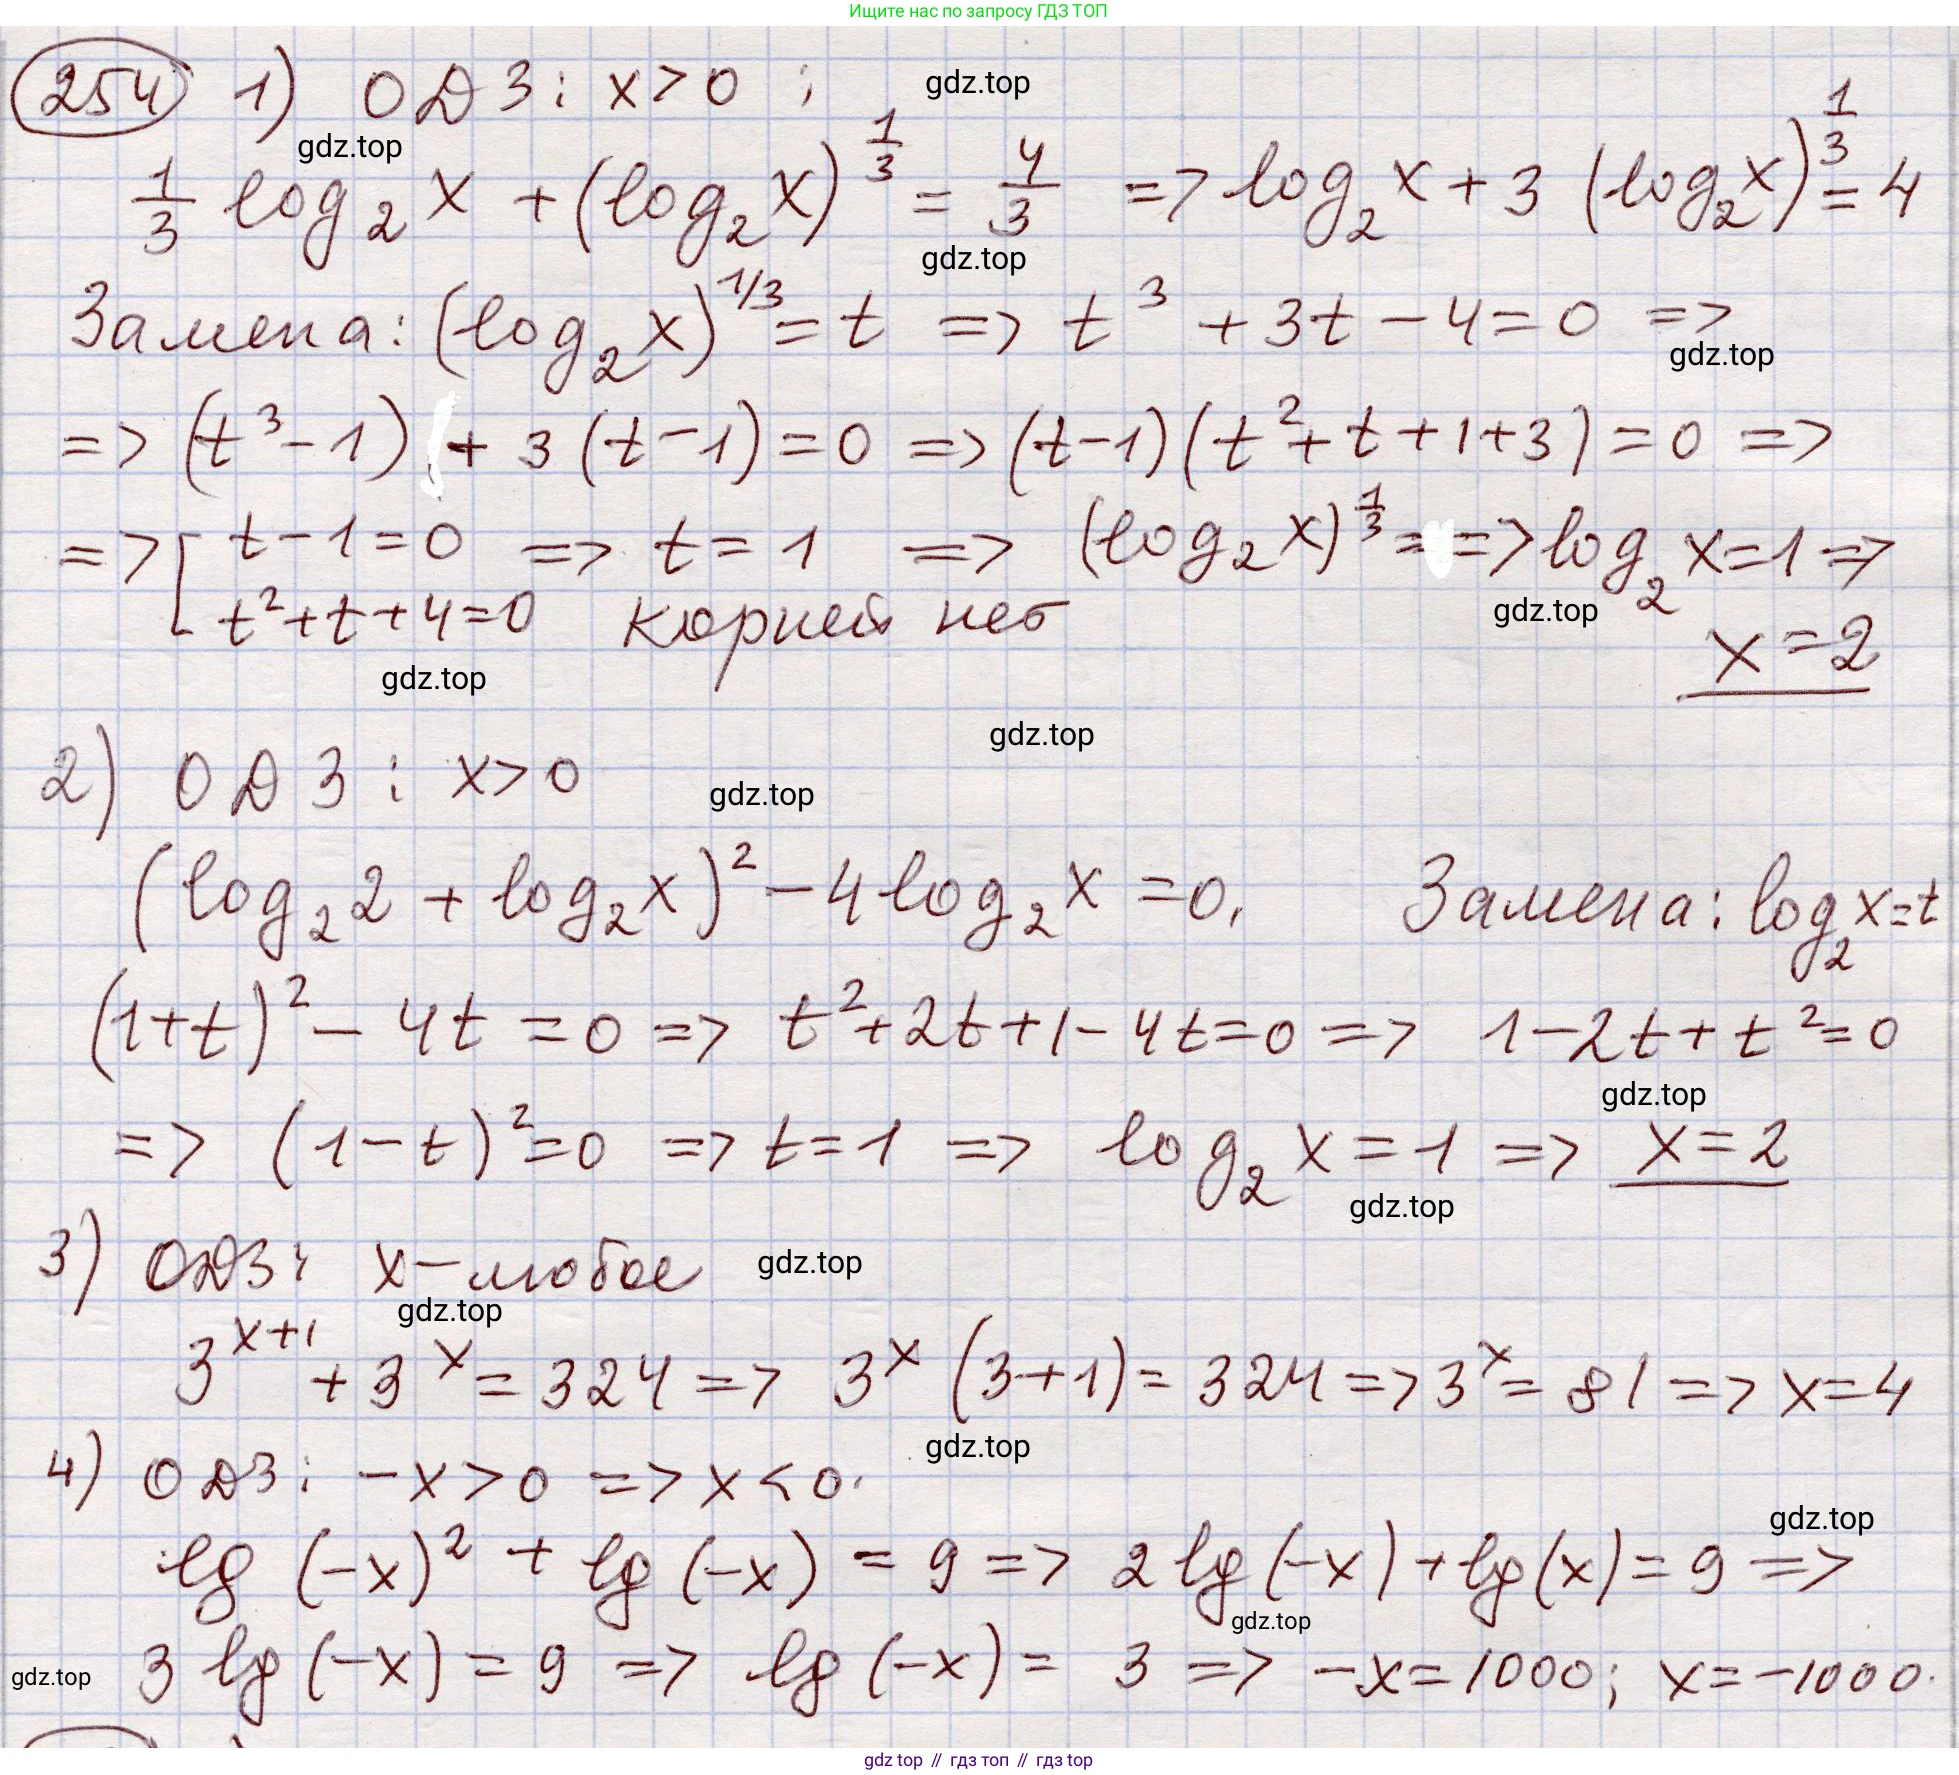 Ищите нас по запросу ГДЗ ТОП
254 1) ОДЗ: x>0 ; gdz.top
gdz.top
1/3 log₂ x + (log₂ x)^(1/3) = 4/3 => log₂ x + 3 (log₂ x)^(1/3) = 4
gdz.top
Замена: (log₂ x)^(1/3) = t => t³ + 3t - 4 = 0 =>
gdz.top
=> (t³ - 1) + 3 (t - 1) = 0 => (t-1)(t² + t + 1 + 3) = 0 =>
=> [ t - 1 = 0 => t = 1 => (log₂ x)^(1/3) = => log₂ x = 1 =>
t² + t + 4 = 0 корней нет gdz.top x = 2
gdz.top
gdz.top
2) ОДЗ : x>0 gdz.top
(log₂ 2 + log₂ x)² - 4 log₂ x = 0, Замена: log₂ x = t
(1+t)² - 4t = 0 => t² + 2t + 1 - 4t = 0 => 1 - 2t + t² = 0
gdz.top
=> (1 - t)² = 0 => t = 1 => log₂ x = 1 => x = 2
gdz.top
3) ОДЗ: x - любое gdz.top
gdz.top
3^(x+1) + 3^x = 324 => 3^x (3+1) = 324 => 3^x = 81 => x = 4
4) ОДЗ: -x > 0 => x < 0. gdz.top
gdz.top
lg (-x)² + lg (-x) = 9 => 2 lg (-x) + lg (x) = 9 =>
gdz.top
gdz.top 3 lg (-x) = 9 => lg (-x) = 3 => -x = 1000; x = -1000.
gdz top // гдз топ // гдз top